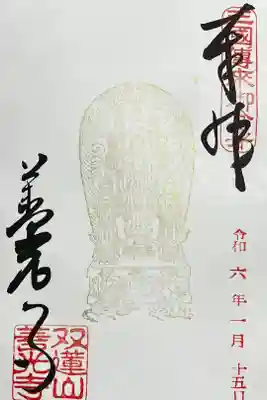 三國傳来御分身
奉拝
令和六年一月十五日
善光寺
双蓮山
善光寺